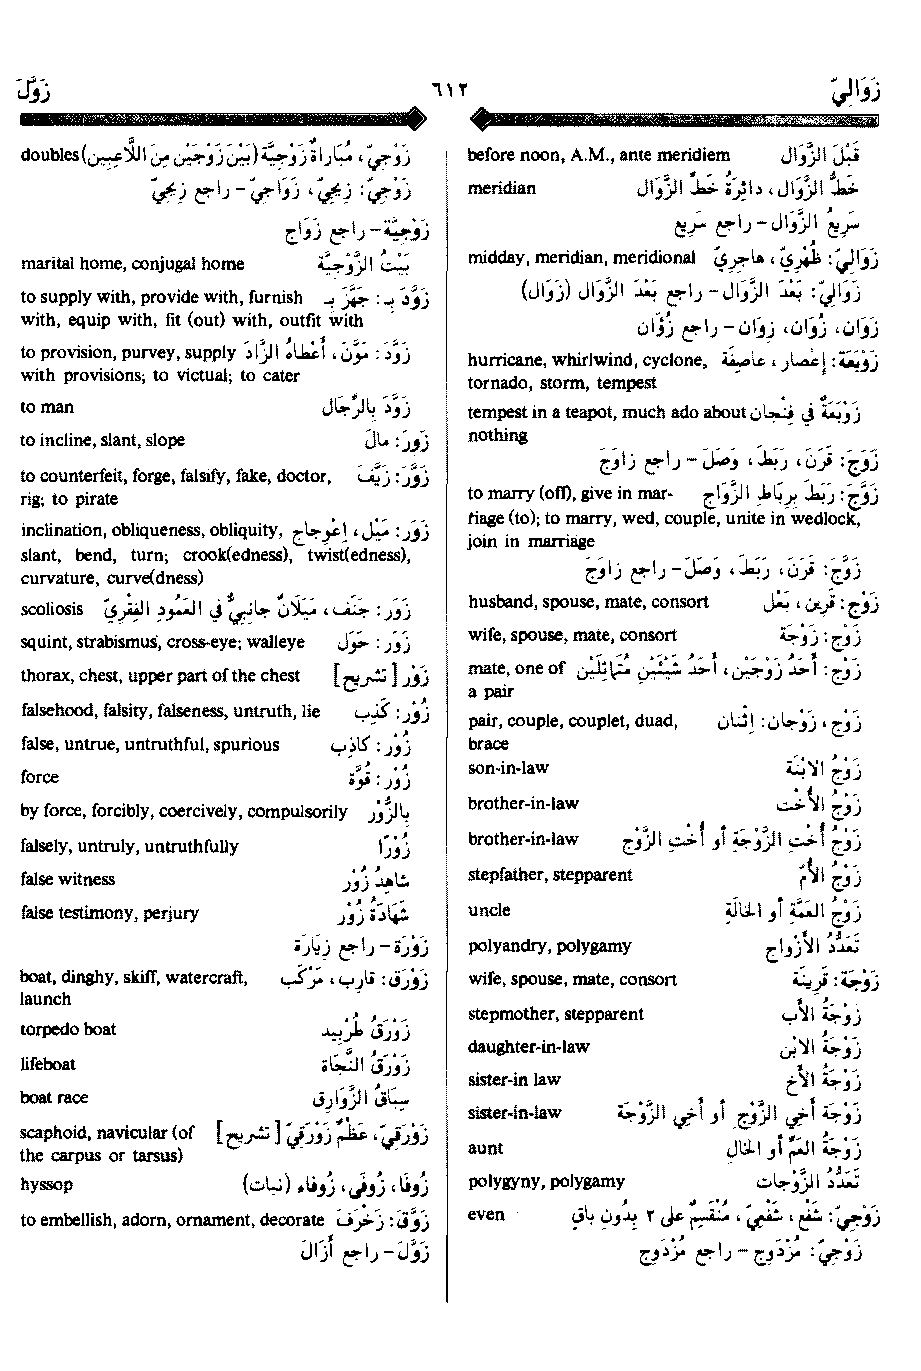 زَوَالِيّ
٦١٢
زَوَّلَ
before noon, A.M., ante meridiem قَبْلَ الزَّوَال
meridian خَطُّ الزَّوَال، دائِرَةُ خَطِّ الزَّوَال
سَرِيعُ الزَّوَال - راجع سَرِيع
midday, meridian, meridional زَوَالِيّ: ظُهْرِيّ، هاجِرِيّ
زَوَالِيّ: بَعْدَ الزَّوَال - راجع بَعْدَ الزَّوَال (زَوَال)
زَوَان، زُوَان، زِوَان - راجع زُؤَان
hurricane, whirlwind, cyclone, زَوْبَعَة: إعْصَار، عاصِفَة
tornado, storm, tempest
tempest in a teapot, much ado about زَوْبَعَةٌ في فِنْجَان
nothing
زَوَجَ: قَرَنَ، رَبَطَ، وَصَلَ - راجع زاوَجَ
to marry (off), give in mar- زَوَّجَ: رَبَطَ بِرِبَاطِ الزَّوَاج
riage (to); to marry, wed, couple, unite in wedlock,
join in marriage
زَوَّجَ: قَرَنَ، رَبَطَ، وَصَلَ - راجع زاوَجَ
husband, spouse, mate, consort زَوْج: قَرِين، بَعْل
wife, spouse, mate, consort زَوْج: زَوْجَة
mate, one of زَوْج: أَحَدُ زَوْجَيْن، أَحَدُ شَيْئَيْنِ مُتَمَاثِلَيْن
a pair
pair, couple, couplet, duad, زَوْج، زَوْجان: إثْنان
brace
son-in-law زَوْجُ الابْنَة
brother-in-law زَوْجُ الأُخْت
brother-in-law زَوْجُ أُخْتِ الزَّوْجَةِ أو أُخْتِ الزَّوْج
stepfather, stepparent زَوْجُ الأُمّ
uncle زَوْجُ العَمَّةِ أو الخَالَة
polyandry, polygamy تَعَدُّدُ الأَزْواج
wife, spouse, mate, consort زَوْجَة: قَرِينَة
stepmother, stepparent زَوْجَةُ الأَب
daughter-in-law زَوْجَةُ الابْن
sister-in law زَوْجَةُ الأَخ
sister-in-law زَوْجَةُ أَخِي الزَّوْجِ أو أَخِي الزَّوْجَة
aunt زَوْجَةُ العَمِّ أو الخَال
polygyny, polygamy تَعَدُّدُ الزَّوْجات
even زَوْجِيّ: شَفْع، شَفْعِيّ، مُنْقَسِمٌ على ٢ بِدُونِ باقٍ
زَوْجِيّ: مُزْدَوِج - راجع مُزْدَوِج
doubles زَوْجِيّ، مُبَاراةٌ زَوْجِيَّة (بَيْنَ زَوْجَيْنِ مِنَ اللَّاعِبِين)
زَوْجِيّ: زِيجِيّ، زَوَاجِيّ - راجع زِيجِيّ
زَوْجِيَّة - راجع زَوَاج
marital home, conjugal home بَيْتُ الزَّوْجِيَّة
to supply with, provide with, furnish زَوَّدَ بِـ: جَهَّزَ بِـ
with, equip with, fit (out) with, outfit with
to provision, purvey, supply زَوَّدَ: مَوَّنَ، أَعْطاهُ الزَّادَ
with provisions; to victual; to cater
to man زَوَّدَ بِالرِّجَال
to incline, slant, slope زَوِرَ: مالَ
to counterfeit, forge, falsify, fake, doctor, زَوَّرَ: زَيَّفَ
rig; to pirate
inclination, obliqueness, obliquity, زَوَر: مَيْل، إعْوِجاج
slant, bend, turn; crook(edness), twist(edness),
curvature, curve(dness)
scoliosis زَوَر: جَنَف، مَيَلَانٌ جانِبِيٌّ في العَمُودِ الفِقْرِيّ
squint, strabismus, cross-eye; walleye زَوَر: حَوَل
thorax, chest, upper part of the chest زَوْر [تشريح]
falsehood, falsity, falseness, untruth, lie زُوْر: كَذِب
false, untrue, untruthful, spurious زُوْر: كاذِب
force زُوْر: قُوَّة
by force, forcibly, coercively, compulsorily بِالزُّوْر
falsely, untruly, untruthfully زُوْرًا
false witness شاهِدُ زُوْر
false testimony, perjury شَهَادَةُ زُوْر
زَوْرَة - راجع زِيَارَة
boat, dinghy, skiff, watercraft, زَوْرَق: قارِب، مَرْكَب
launch
torpedo boat زَوْرَقُ طُرْبِيد
lifeboat زَوْرَقُ النَّجَاة
boat race سِبَاقُ الزَّوَارِق
scaphoid, navicular (of زَوْرَقِيّ، عَظْمٌ زَوْرَقِيّ [تشريح]
the carpus or tarsus)
hyssop زُوفَا، زُوفَى، زُوفَاء (نبات)
to embellish, adorn, ornament, decorate زَوَّقَ: زَخْرَفَ
زَوَّلَ - راجع أَزَالَ